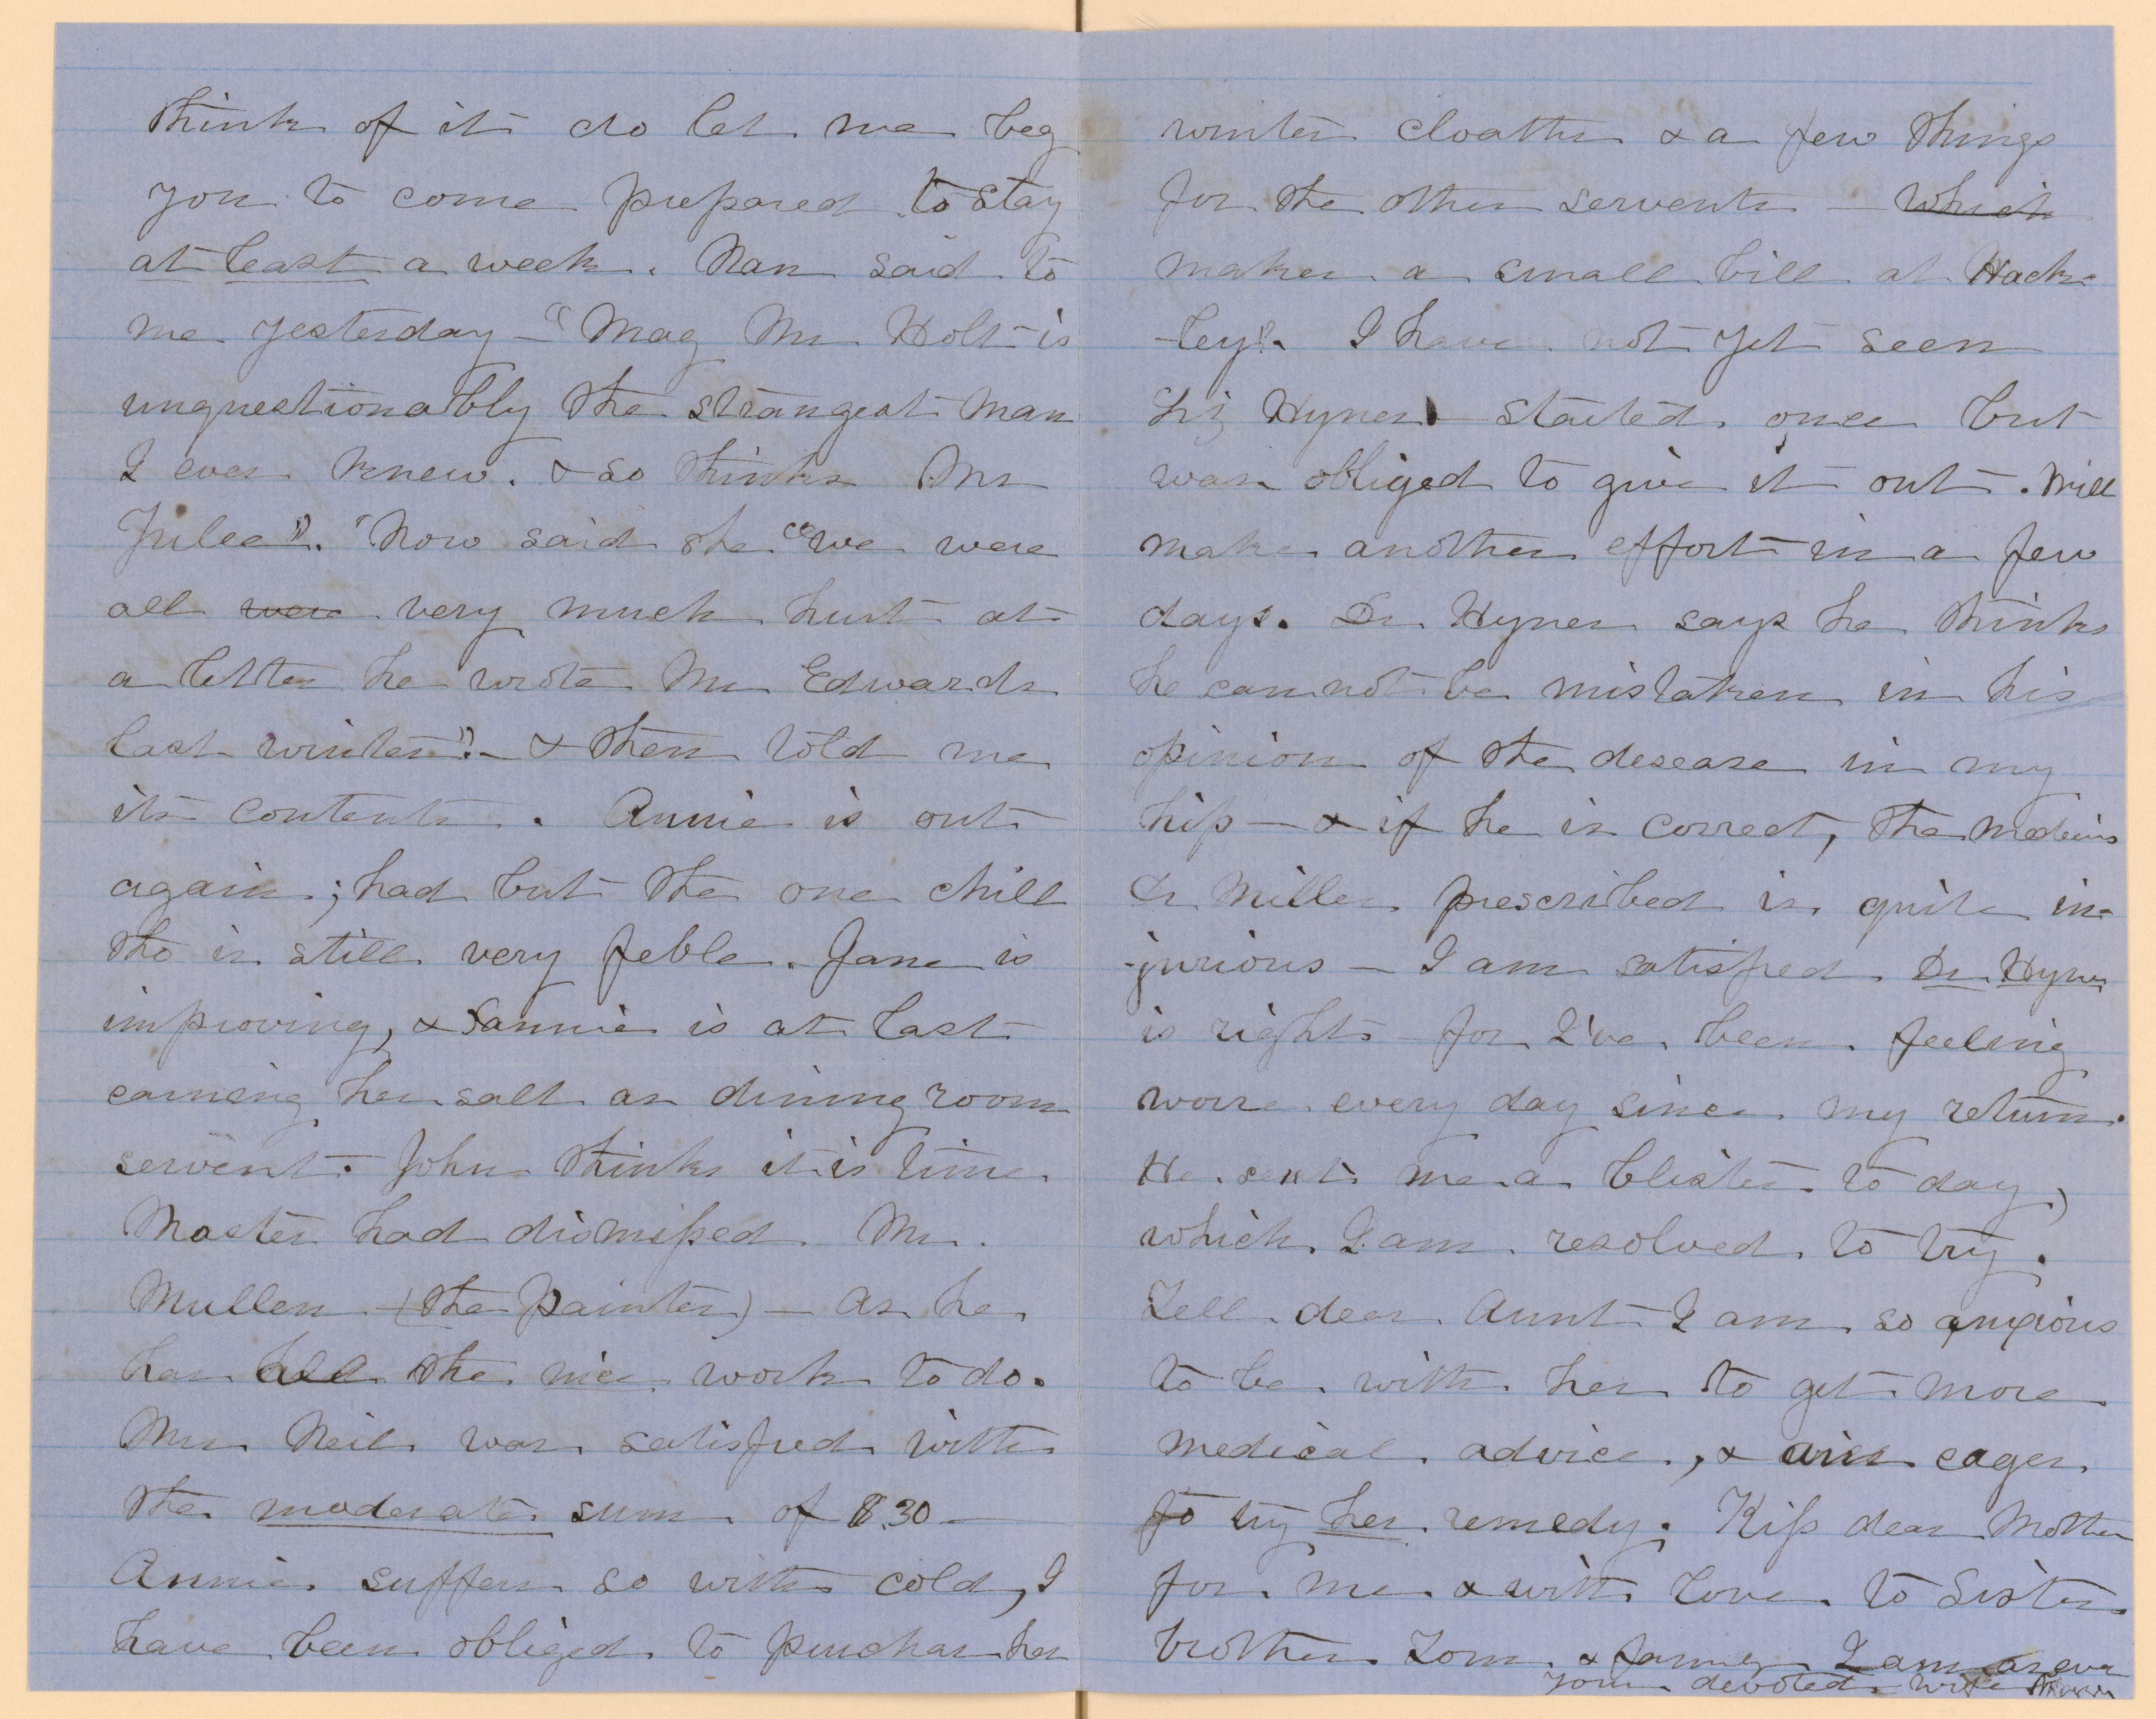 think of it do let me beg
you to come prepared to stay
at least a week. Nan said to
me yesterday – "Mag Mr Holt is
unquestionably the strangest man
I ever knew. & so thinks Mr
Julee". "Now said she "we were
all were very much hurt at
a letter he wrote Mr Edwards
last winter" – & then told me
its contents. Annie is out
again; had but the one chill
tho is still very feble. Jane is
improving, & Sannie is at last
earning her salt as dining room
servent. John thinks it is time
Master had dismissed Mr.
Mullen (the painter) – as he
has all the nice work to do.
Mrs Neil was satisfied with
the moderate sum of $30 –
Annie suffers so with cold, I
have been obliged to purchas her
winter cloaths & a few things
for the other servents – which
makes a small bill at Hack-
-ley's. I have not yet seen
Liz Hynes – started once but
was obliged to give it out. Will
make another effort in a few
days. Dr. Hynes says he thinks
he cannot be mistaken in his
opinion of the desease in my
hip – & if he is correct, the medecins
Dr Miller prescribed is quite in-
-jurious – I am satisfied Dr. Hynes
is right for I've been feeling
worse every day since my return.
He sent me a blister to day,
which I am resolved to try.
Tell dear Aunt I am so anxious
to be with her to get more
medical advice, & am eager
to try her remedy. Kiss dear Mother
for me & with love to Sister
brother Tom & family I am as ever
Your devoted wife